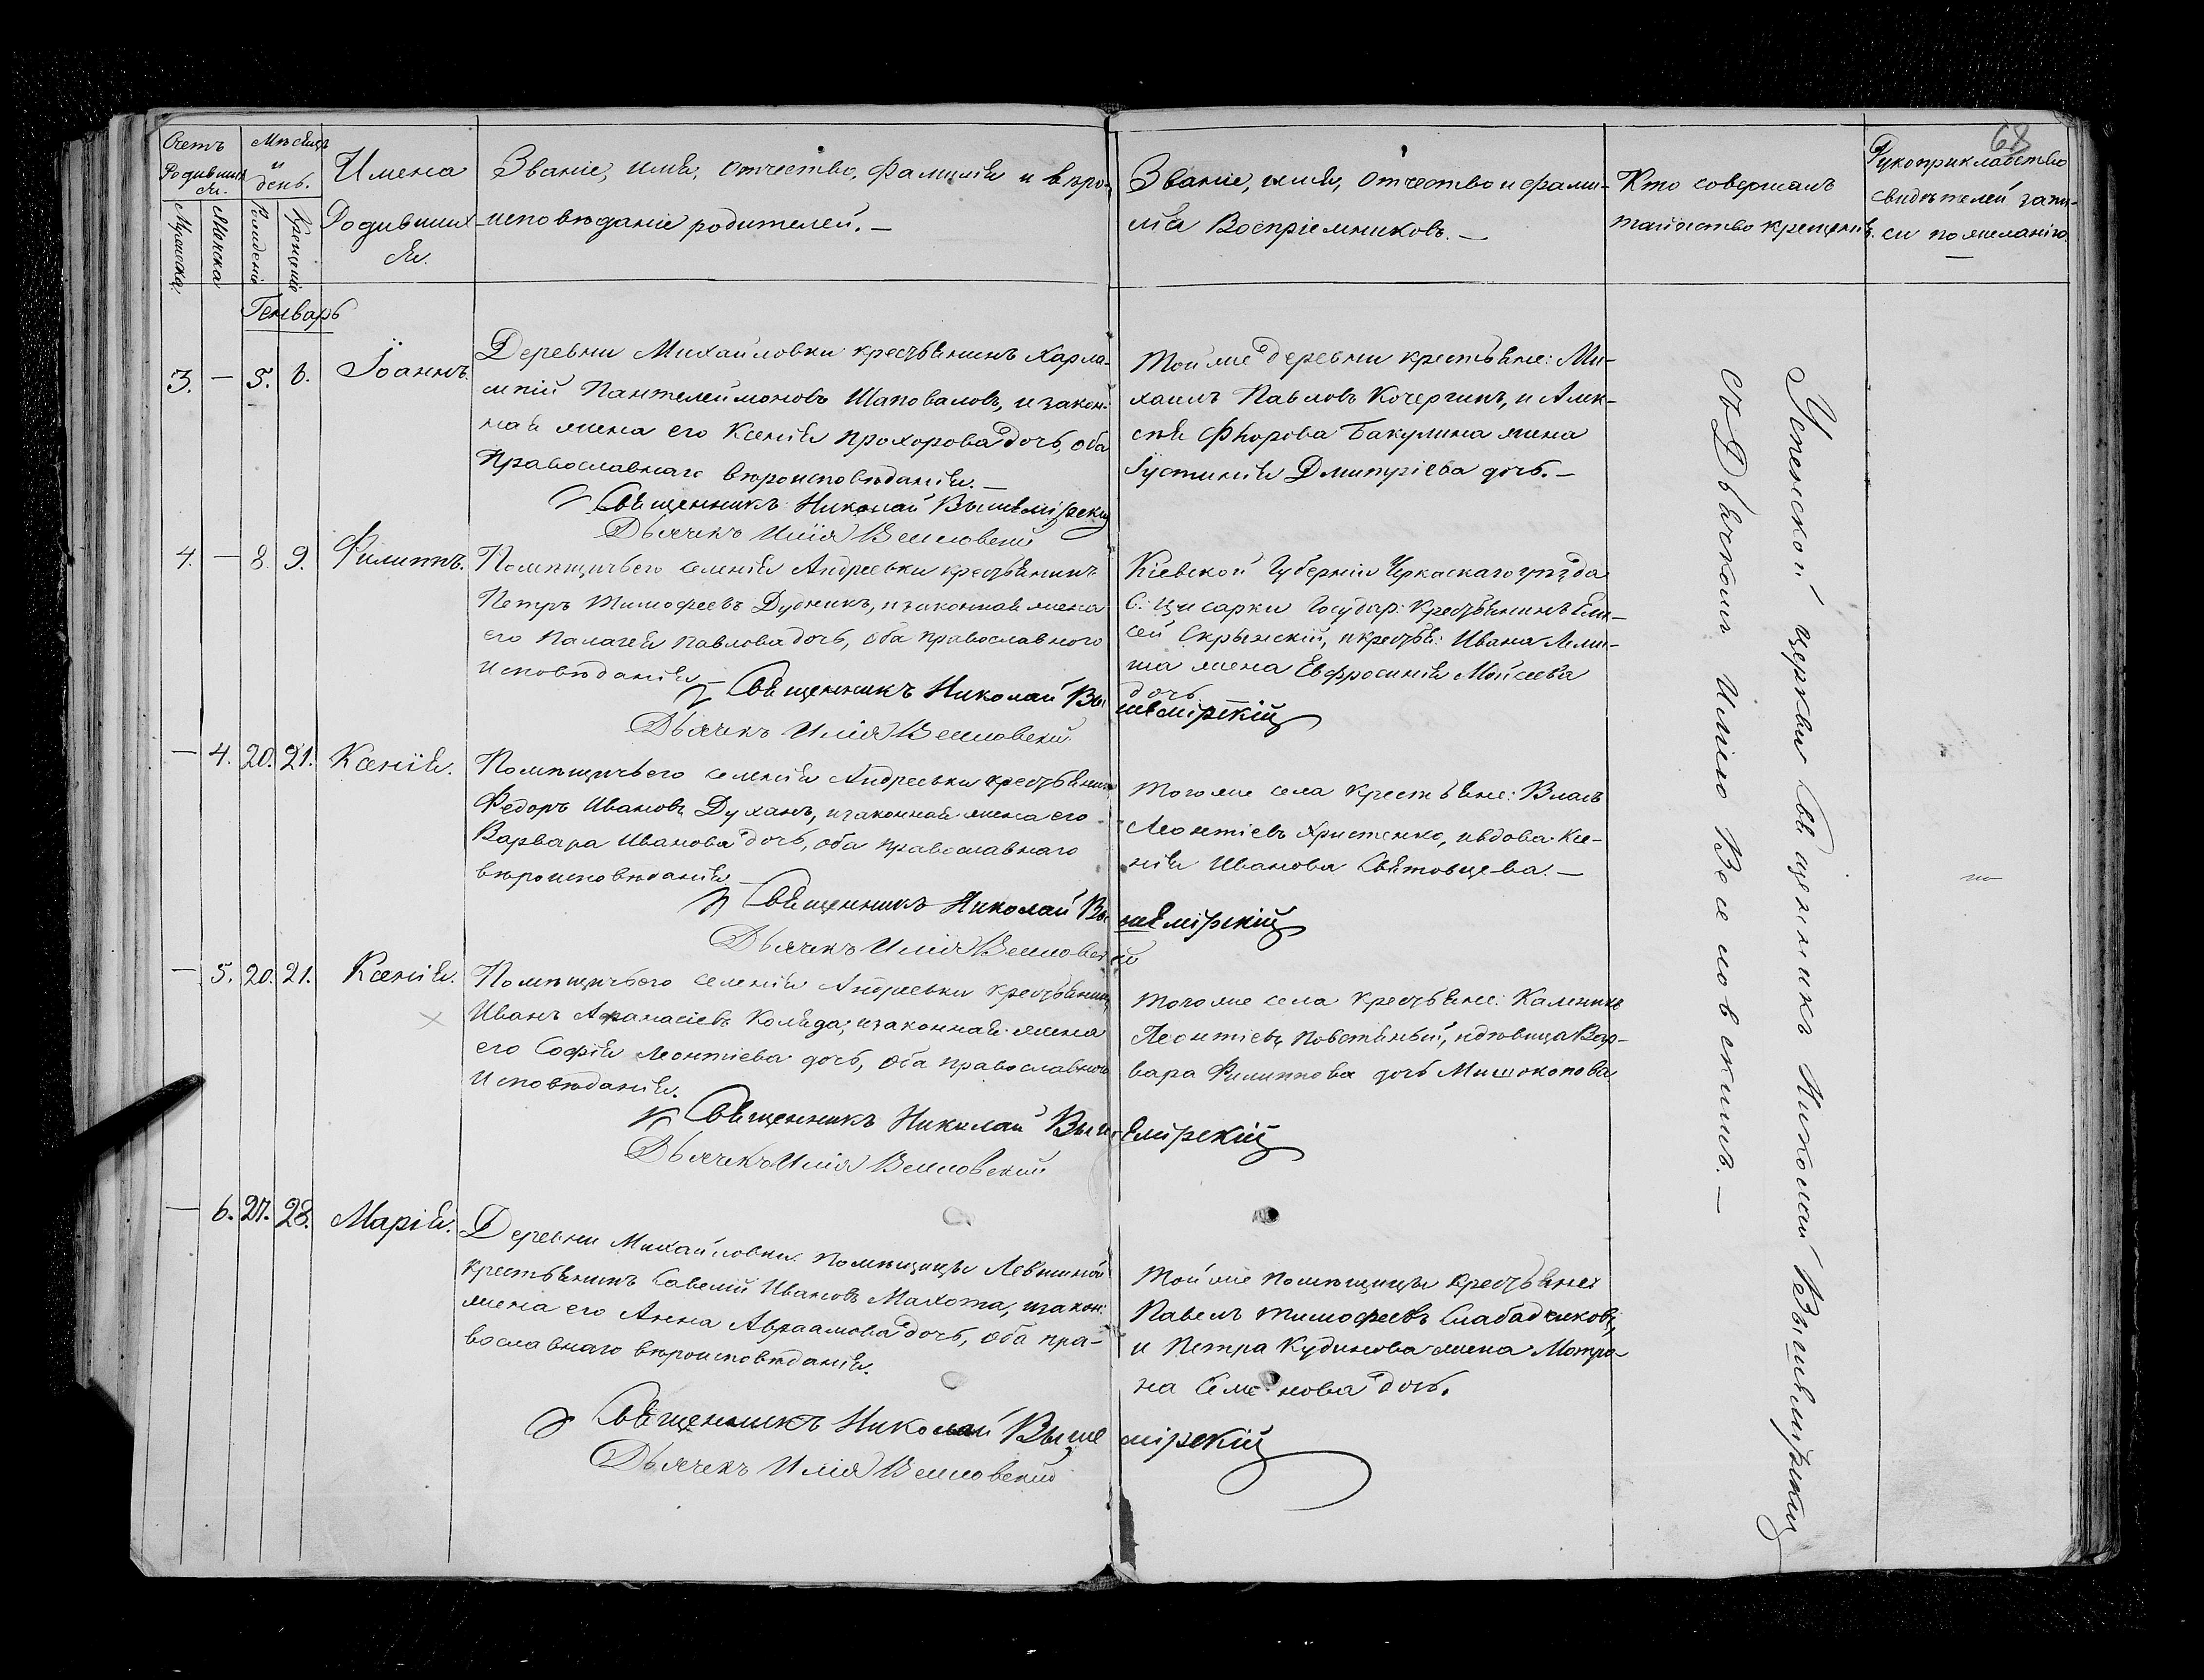 68
Счетъ
Родивших
ся.
Мѣсяцъ
и
день.
Мужеска
Женска
Рожденіе
Крещеніе
Имена
Родивших
ся.
Званіе, имя, отчество, фамилія и вѣро-
исповѣданіе родителей. —
Званіе, имя, отчество и фами-
лія Воспріемниковъ. —
Кто совершалъ
таинство крещенія.
Рукоприкладство
свидѣтелей запи-
си по желанію.
Генварь
3. — 5. 6. Іоаннъ.
Деревни Михайловки крестьянинъ Харла-
мпій Пантелеймоновъ Шаповаловъ, и закон:
ная жена его Ксенія Прохорова дочь, оба
Православнаго вѣроисповѣданія. —
Священникъ Николай Вышемірскій
Дьячекъ Илія Веселовскій
Той же деревни крестьяне: Ми-
хаилъ Павловъ Кочергинъ, и Алек-
сѣя Фѣорова Бакулина жена
Іустинія Дмитріева дочь. —
4. — 8. 9. Филиппъ.
Помѣщичьего селенія Андреевки крестьянинъ
Петръ Тимофеевъ Дудникъ, и законная жена
его Палагея Павлова дочь, оба православного
Исповѣданія —
Священникъ Николай Вышемірскій
Дьячекъ Илія Веселовскій
Кіевской Губерніи Черкаскаго уѣзда
С: Цисарки Государ: Крестьянинъ Ели-
сей Скрынскій, и крестья: Ивана Леми-
ша жена Евфросинія Мойсеева
дочь
— 4. 20. 21. Ксенія.
Помѣщичьего селенія Андреевки крестьянинъ
Федоръ Ивановъ Духанъ, и законная жена его
Варвара Иванова дочь, оба православнаго
вѣроисповѣданія —
Священникъ Николай Вышемірскій
Дьячекъ Илія Веселовскій
Того же села крестьяне: Власъ
Леонтіевъ Христенко, и вдова Ксе-
нія Иванова Святовцева. —
но
— 5. 20. 21. Ксенія.
Помѣщичьего селенія Андреевки крестьянинъ
Иванъ Афанасіевъ Коляда, и законная жена
его Софія Леонтіева дочь, оба православного
Исповѣданія.
Священникъ Николай Вышемірскій
Дьячекъ Илія Веселовскій
Того же села крестьяне: Каленикъ
Леонтіевъ Повстяный, и дѣвица Вар-
вара Филиппова дочь Мишокопова
— 6. 27. 28. Марія.
Деревни Михайловки помѣщицы Левшиной
крестьянинъ Савелій Ивановъ Махота, и закон:
жена его Анна Авраамова дочь, оба пра-
вославнаго вѣроисповѣданія.
Священникъ Николай Вышемірскій
Дьячекъ Илія Веселовскій
Той же помѣщицы крестьяне:
Павелъ Тимофеевъ Слабадчиковъ,
и Петра Кудинова жена Матро-
на Семенова дочь.
Успенской церкви Священникъ Николай Вышемірскій
съ Дьячкомъ Иліею Веселовскимъ. —